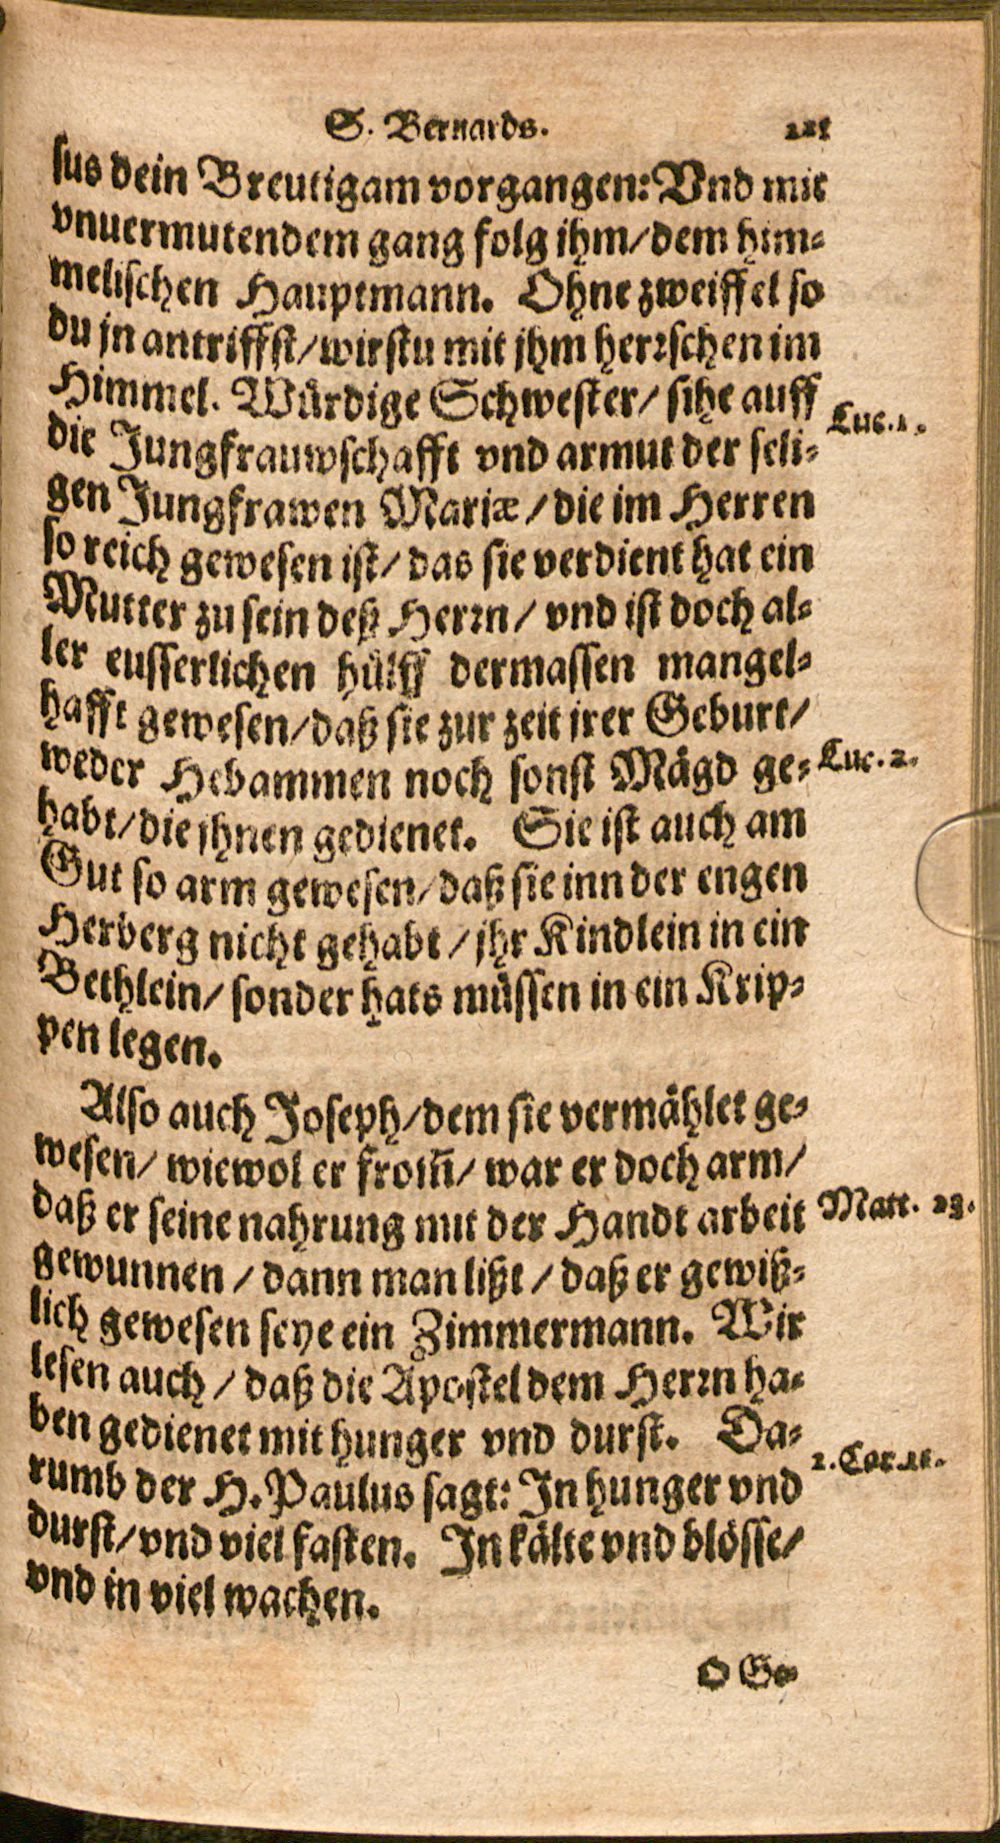 S. Bernards.
sus dein Breutigam vorgangen: Vnd mit
vnuermutendem gang folg ihm/dem him-
melischen Hauptmann. Ohne zweiffel so
du jn antriffst/wirstu mit jhm herrschen im
Himmel. Würdige Schwester/ sihe auff
Luc. 1.
die Jungfrauwschafft vnd armut der seli-
gen Jungfrawen Mariæ/die im Herren
so reich gewesen ist/ das sie verdient hat ein
Mutter zu sein deß Herrn/ vnd ist doch al-
ler eusserlichen hülff dermassen mangel-
hafft gewesen/daß sie zur zeit jrer Geburt/
weder Hebammen noch sonst Mägd ge-
Luc. 2.
habt/die jhnen gedienet. Sie ist auch am
Gut so arm gewesen/daß sie inn der engen
Herberg nicht gehabt/jhr Kindlein in ein
Bethlein/ sonder hats müssen in ein Krip-
pen legen.
Also auch Joseph/dem sie vermählet ge-
wesen/ wiewol er from̃/ war er doch arm/
daß er seine nahrung mit der Handt arbeit
Matt. 23.
gewunnen/dann man lißt/daß er gewiß-
lich gewesen seye ein Zimmermann. Wir
lesen auch/daß die Apostel dem Herrn ha-
ben gedienet mit hunger vnd durst. Da-
rumb der H. Paulus sagt: In hunger vnd
2. Cor. 11.
durst/vnd viel fasten. In kälte vnd blösse/
vnd in viel wachen.
O Ge-